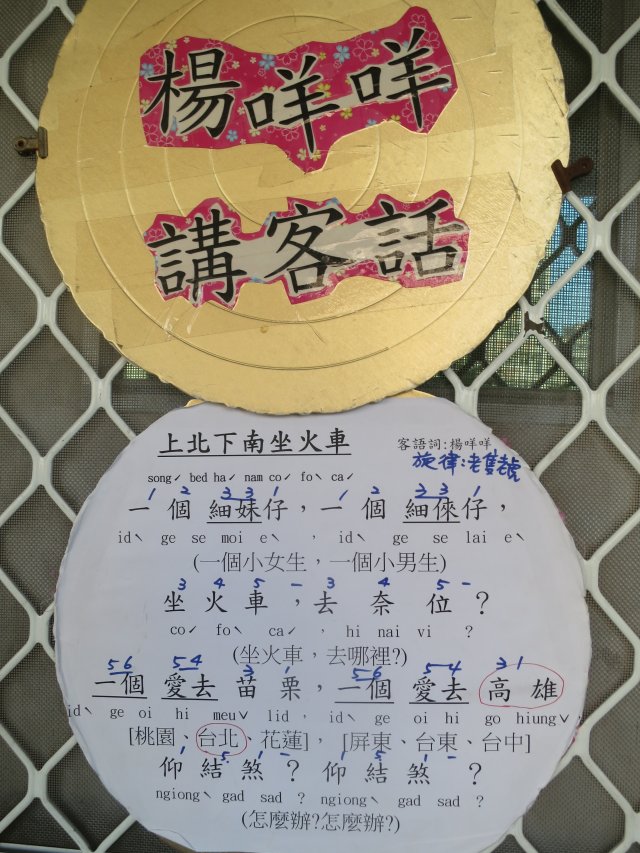 楊咩咩
講客話
上北下南坐火車
客語詞:楊咩咩
旋律:老隻虎
songˊ bed haˊ nam coˊ foˋ caˊ
1 2 3 3 1 1 2 3 3 1
一個細妹仔,一個細倈仔,
idˋ ge se moi eˋ , idˋ ge se lai eˋ
(一個小女生,一個小男生)
3 4 5 – 3 4 5 –
坐火車,去奈位?
coˊ foˋ caˊ , hi nai vi ?
(坐火車,去哪裡?)
5 6 5 4 3 1 5 6 5 4 3 1
一個愛去苗栗,一個愛去高雄
idˋ ge oi hi meuˇ lid , idˋ ge oi hi go hiungˇ,
[桃園、台北、花蓮], [屏東、台東、台中]
1 5 1 – 1 5 1 –
仰結煞?仰結煞?
ngiongˋ gad sad ? ngiongˋ gad sad ?
(怎麼辦?怎麼辦?)